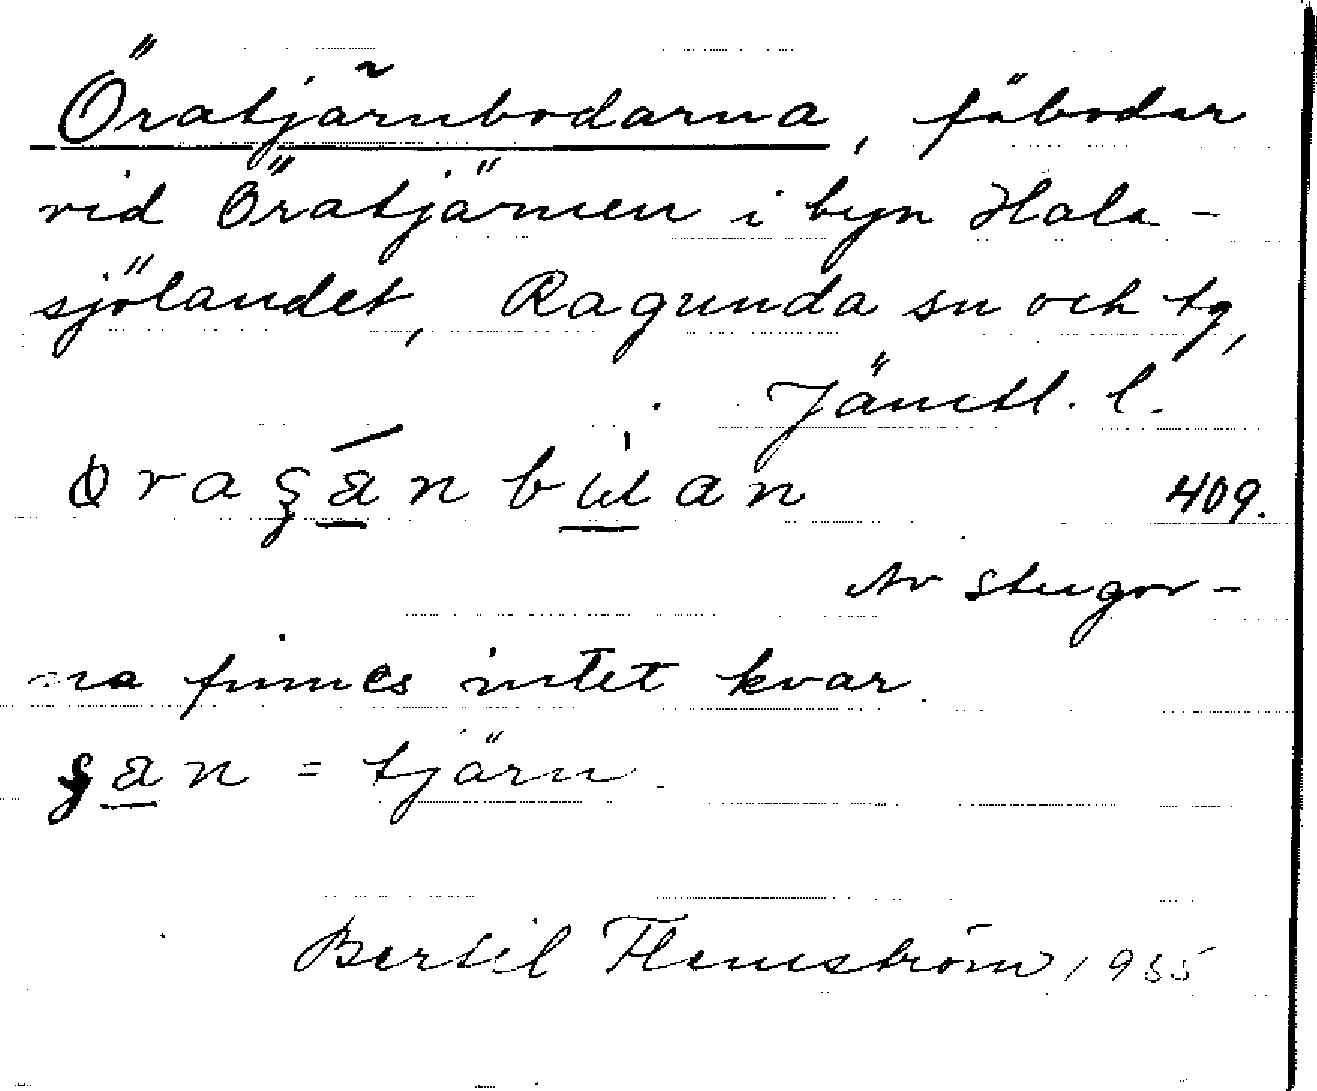 Öratjärnbodarna, fäbodar
vid Öratjärnen i byn Hala-
sjölandet, Ragunda sn och tg,
Jämtl. l.
409.
Av stugor-
na finnes intet kvar.
= tjärn
Bertil Flemström, 1955